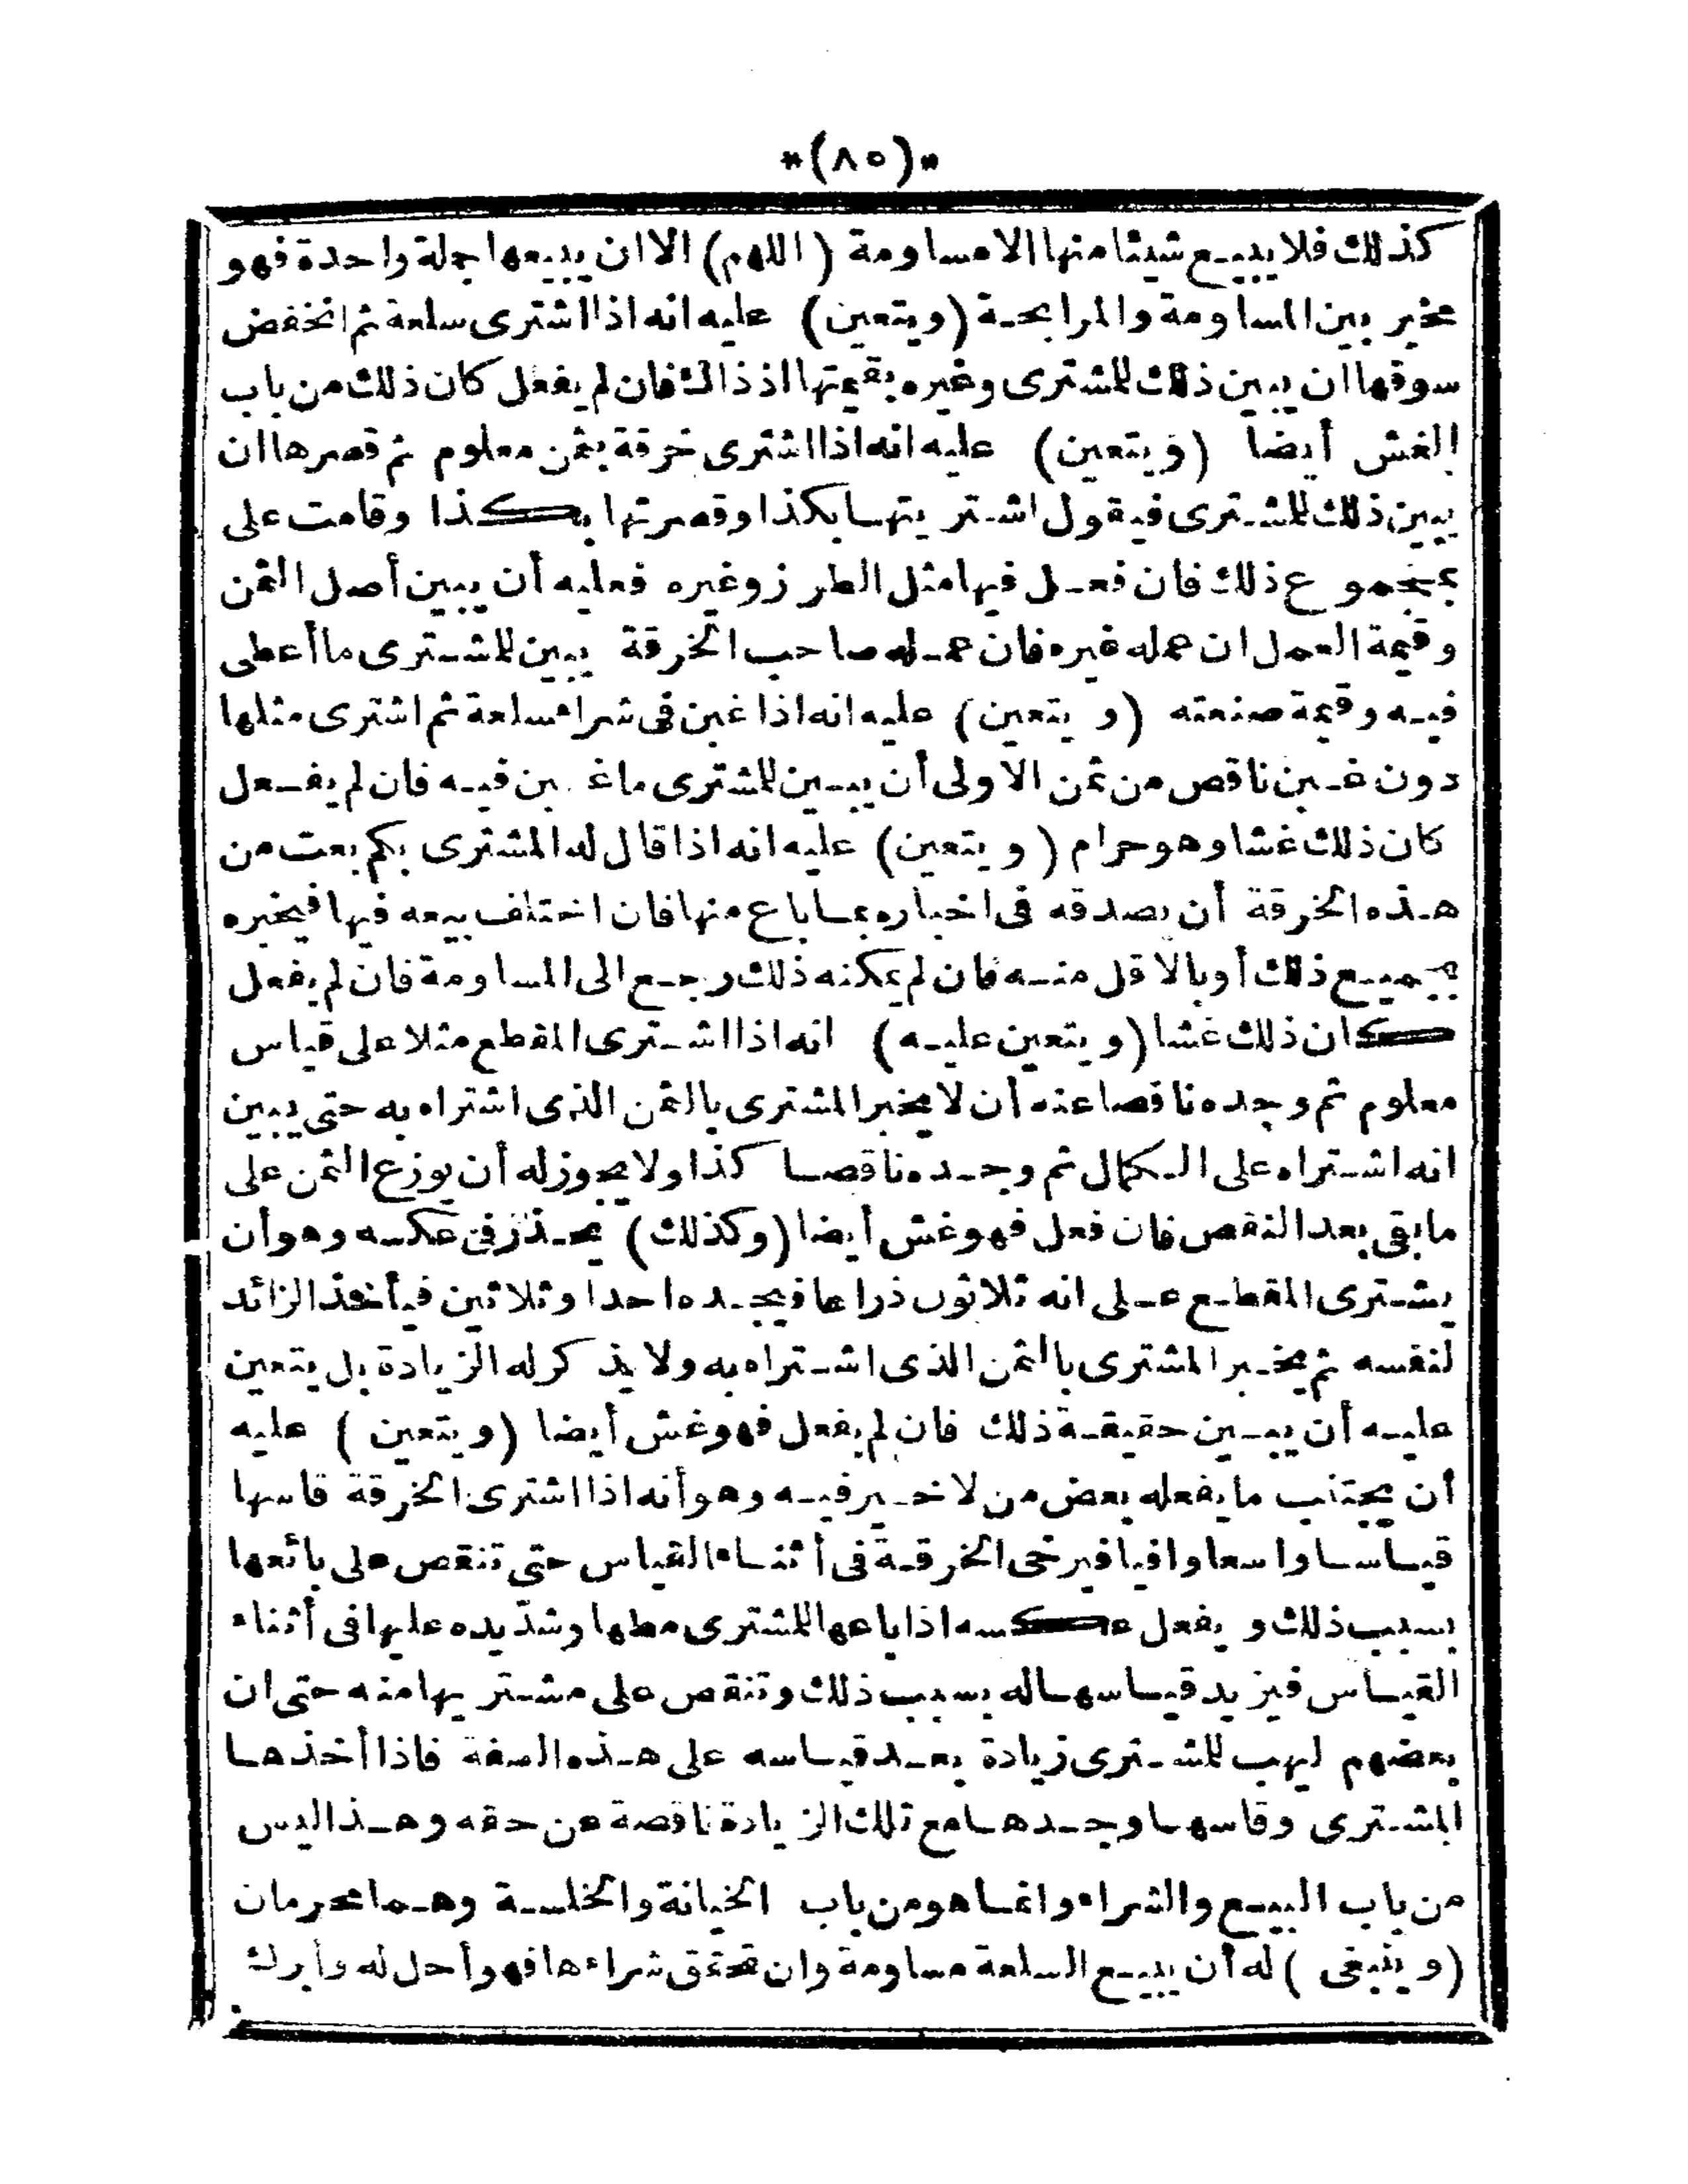 *(٨٥)*
كذلك فلا يبيع شيئا منها الا مساومة (اللهم) الا ان يبيعها جملة واحدة فهو
مخير بين المساومة والمرابحة (ويتعين) عليه انه اذا اشترى سلعة ثم انخفض
سوقها ان يبين ذلك للمشترى وغيره بقيمتها اذ ذاك فان لم يفعل كان ذلك من باب
الغش أيضا (ويتعين) عليه انه اذا اشترى خرقة بثمن معلوم ثم قصرها ان
يبين ذلك للمشترى فيقول اشتريتها بكذا وقصرتها بكذا وقامت على
بمجموع ذلك فان فعل فيها مثل الطرز وغيره فعليه أن يبين أصل الثمن
وقيمة العمل ان عمله غيره فان عمله صاحب الخرقة يبين للمشترى ما أعطى
فيه وقيمة صنعته (ويتعين) عليه انه اذا غبن فى شراء سلعة ثم اشترى مثلها
دون غبن ناقص من ثمن الاولى أن يبين للمشترى ما غبن فيه فان لم يفعل
كان ذلك غشا وهو حرام (ويتعين) عليه انه اذا قال له المشترى بكم بعت من
هذه الخرقة أن يصدقه فى اخباره بما باع منها فان اختلف بيعه فيها فيخبره
بجميع ذلك أو بالاقل منه فان لم يمكنه ذلك رجع الى المساومة فان لم يفعل
كان ذلك غشا (ويتعين عليه) انه اذا اشترى المقطع مثلا على قياس
معلوم ثم وجده ناقصا عنه أن لا يخبر المشترى بالثمن الذى اشتراه به حتى يبين
انه اشتراه على الكمال ثم وجده ناقصا كذا ولا يجوز له أن يوزع الثمن على
ما بقى بعد النقص فان فعل فهو غش أيضا (وكذلك) يحذر فى عكسه وهو أن
يشترى المقطع على انه ثلاثون ذراعا فيجده احدا وثلاثين فيأخذ الزائد
لنفسه ثم يخبر المشترى بالثمن الذى اشتراه به ولا يذكر له الزيادة بل يتعين
عليه أن يبين حقيقة ذلك فان لم يفعل فهو غش أيضا (ويتعين) عليه
أن يجتنب ما يفعله بعض من لا خير فيه وهو أنه اذا اشترى الخرقة قاسها
قياسا واسعا وافيا فيرخى الخرقة فى أثناء القياس حتى تنقص على بائعها
بسبب ذلك ويفعل عكسه اذا باعها للمشترى مطها وشدّ يده عليها فى أثناء
القياس فيزيد قياسها له بسبب ذلك وتنقص على مشتريها منه حتى ان
بعضهم ليهب للمشترى زيادة بعد قياسه على هذه الصفة فاذا أخذها
المشترى وقاسها وجدها مع تلك الزيادة ناقصة عن حقه وهذا ليس
من باب البيع والشراء وانما هو من باب الخيانة والخلسة وهما محرمان
(وينبغى) له أن يبيع السلعة مساومة وان تحقق شراءها فهو أحل له وأبرك